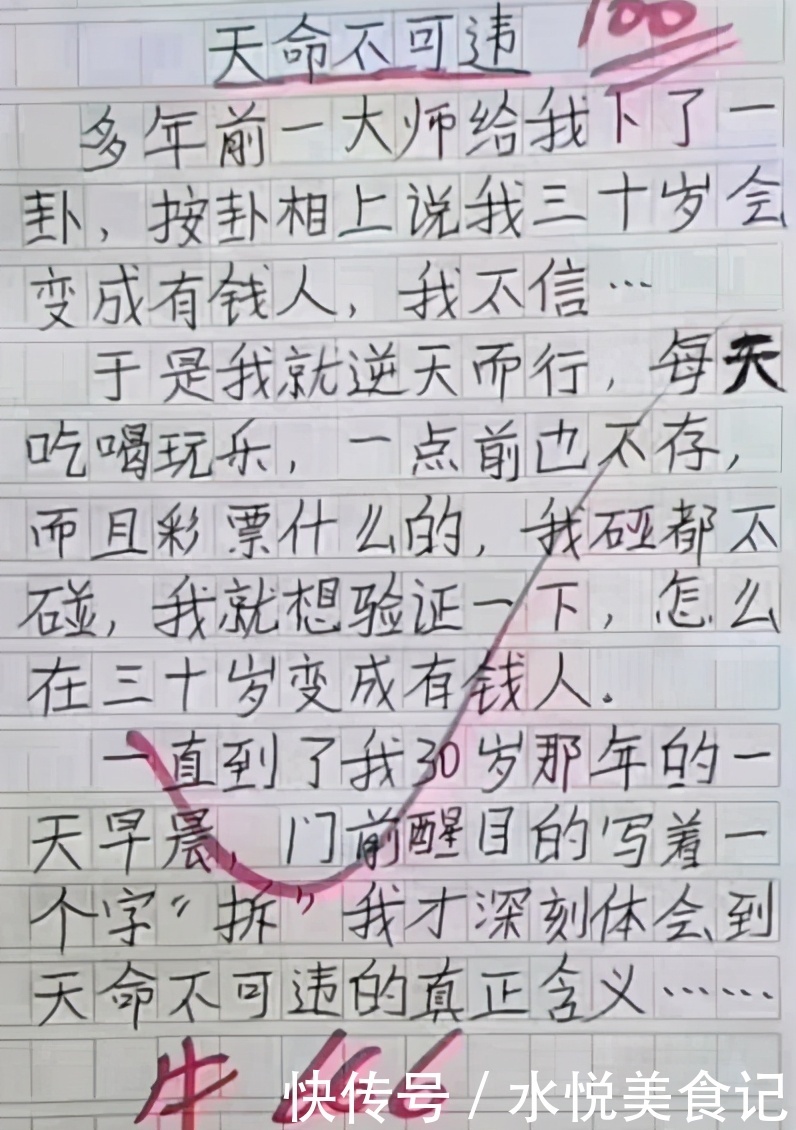 100
天命不可违
多年前一大师给我下了一
卦，按卦相上说我三十岁会
变成有钱人，我不信…
于是我就逆天而行，每天
吃喝玩乐，一点前也不存，
而且彩票什么的，我碰都不
碰，我就想验证一下，怎么
在三十岁变成有钱人。
一直到了我30岁那年的一
天早晨，门前醒目的写着一
个字“拆”我才深刻体会到
天命不可违的真正含义……
牛 666
快传号 / 水悦美食记